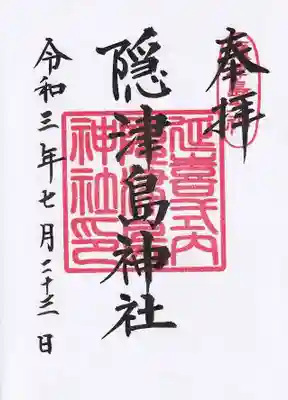 奉拝
隠津島神社
延喜式内
隠津島
神社印
令和三年七月二十三日